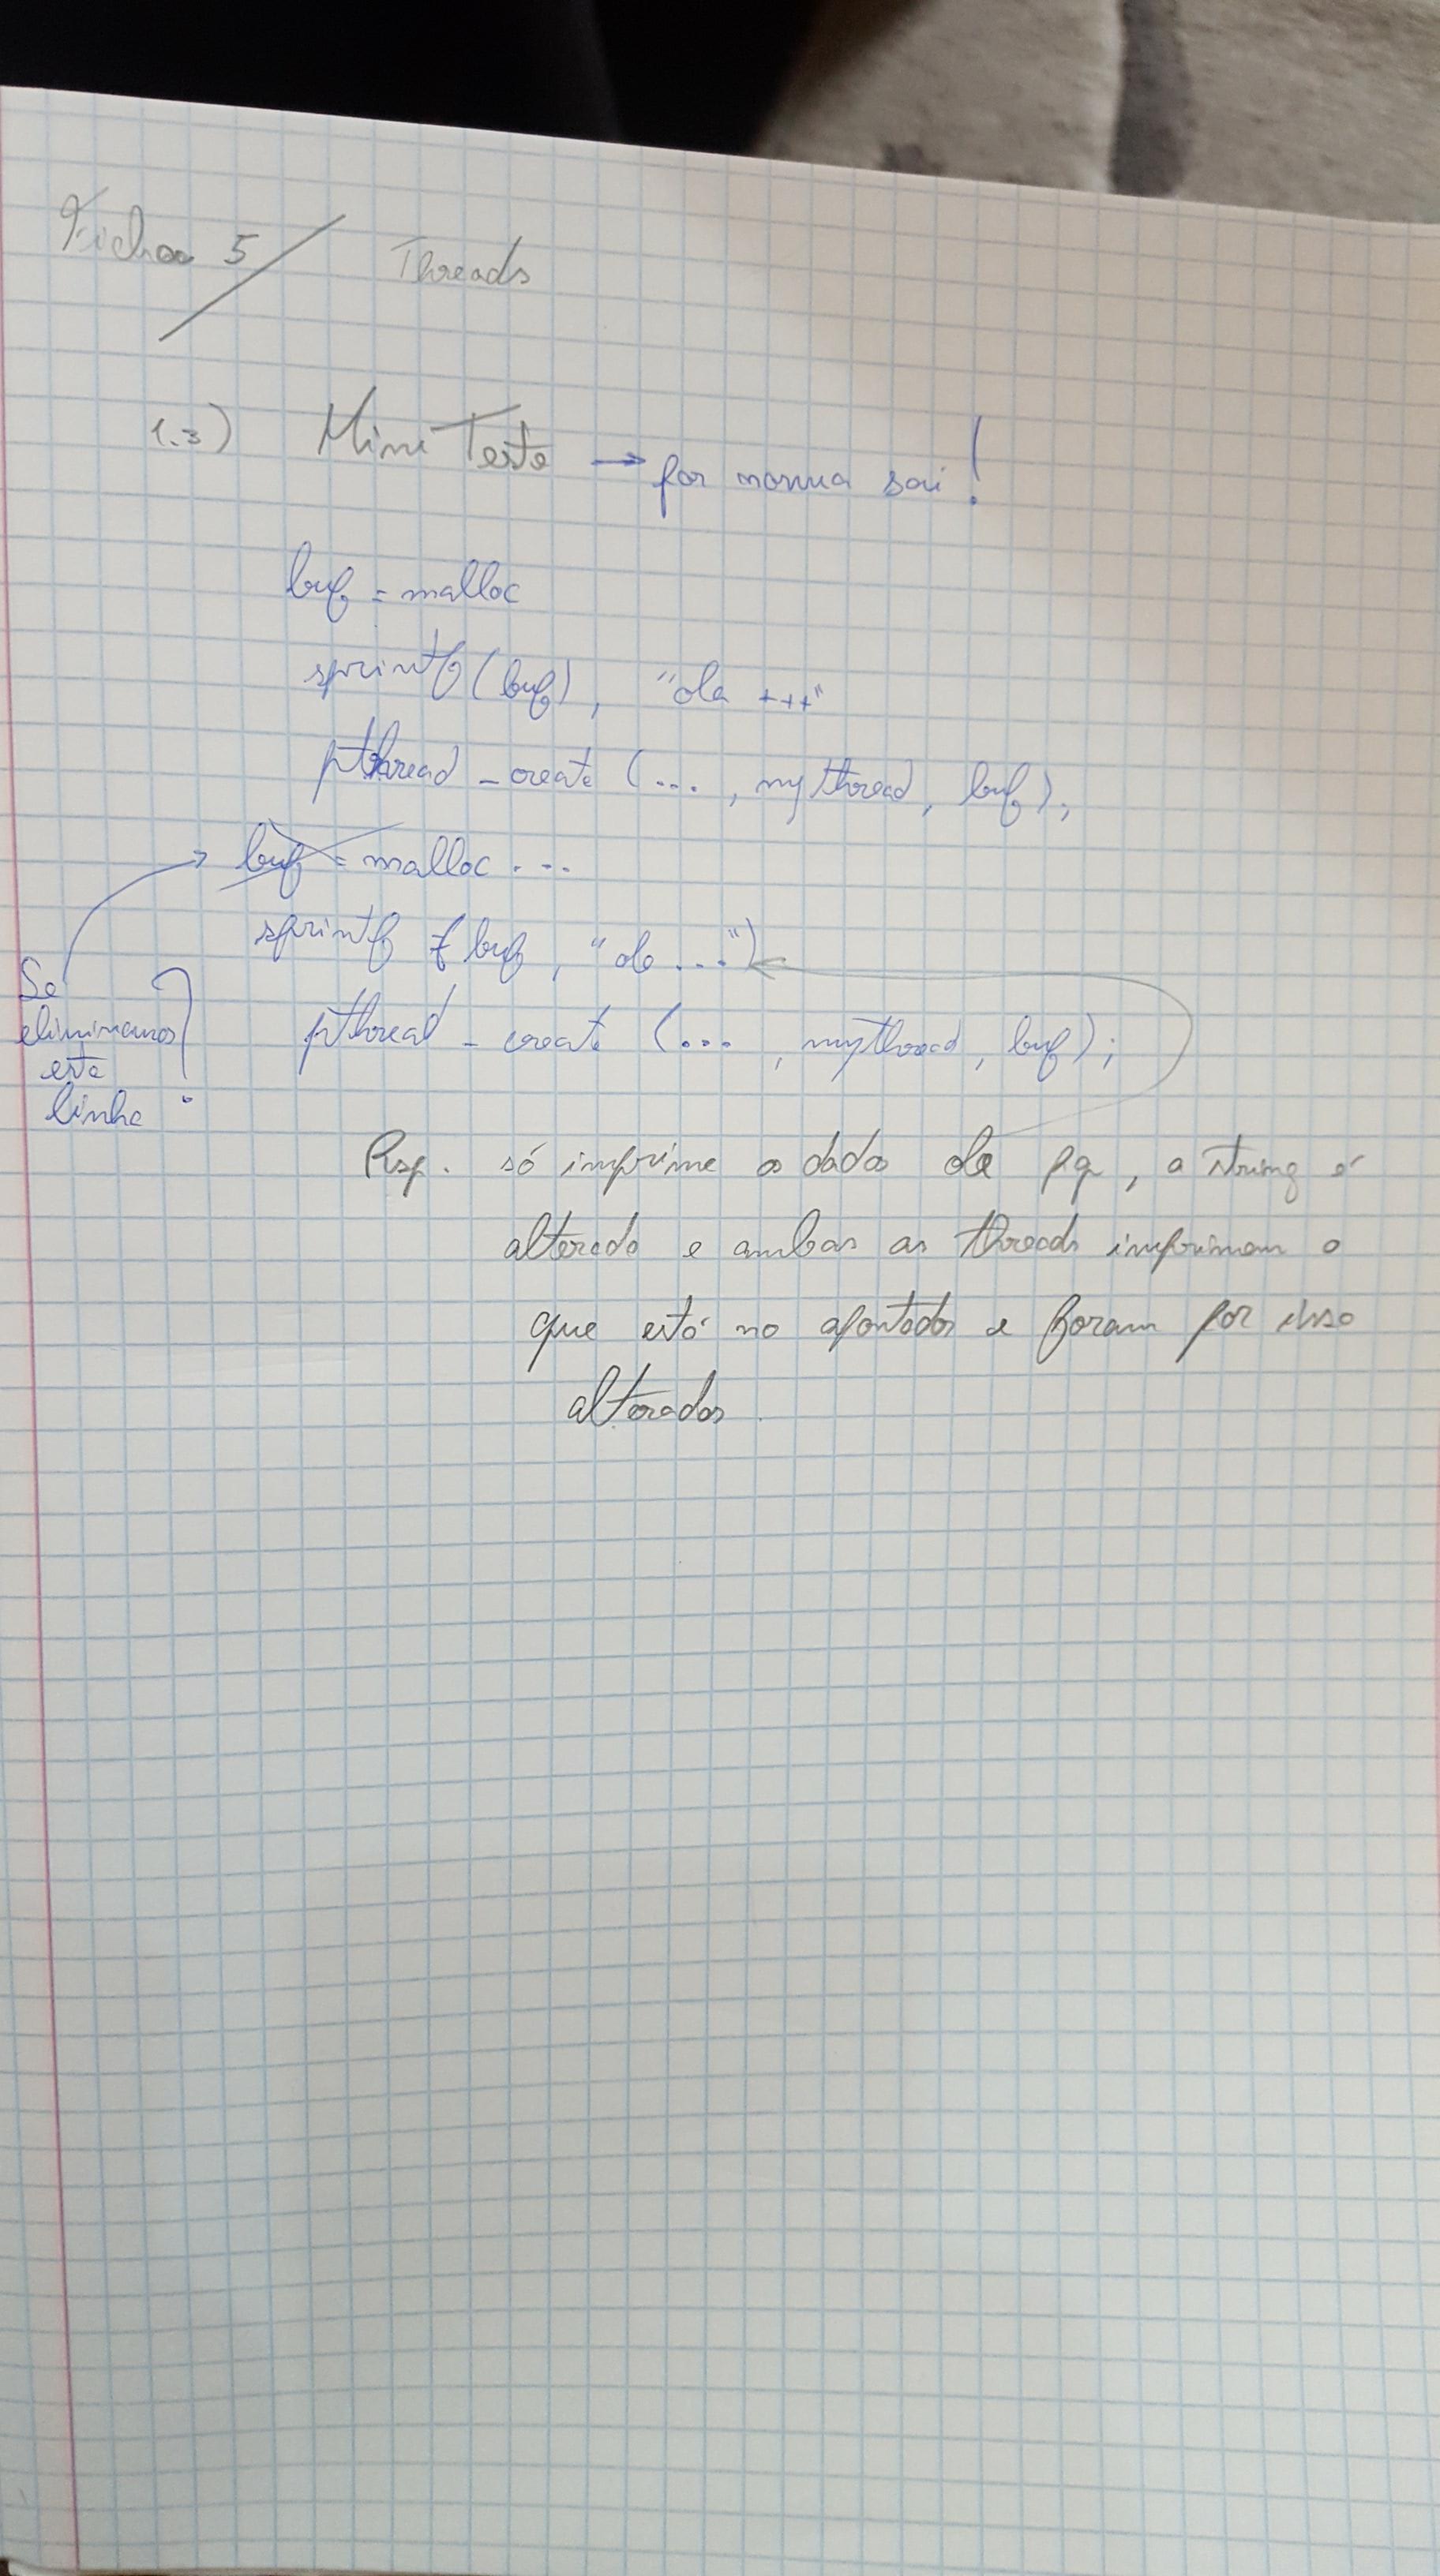 Ficha 5 Threads
1.3) Mini Teste → por norma sai!
buf = malloc
sprintf(buf), "ola +++"
pthread_create (..., mythread, buf);
buf = malloc ...
sprintf ( buf, "ola ...")
pthread_create (..., mythread, buf);
Se
eliminarmos
esta
linha ?
Resp. só imprime os dados de , a string é
alterada e ambas as threads imprimem o
que está no apontador e foram por isso
alterados.